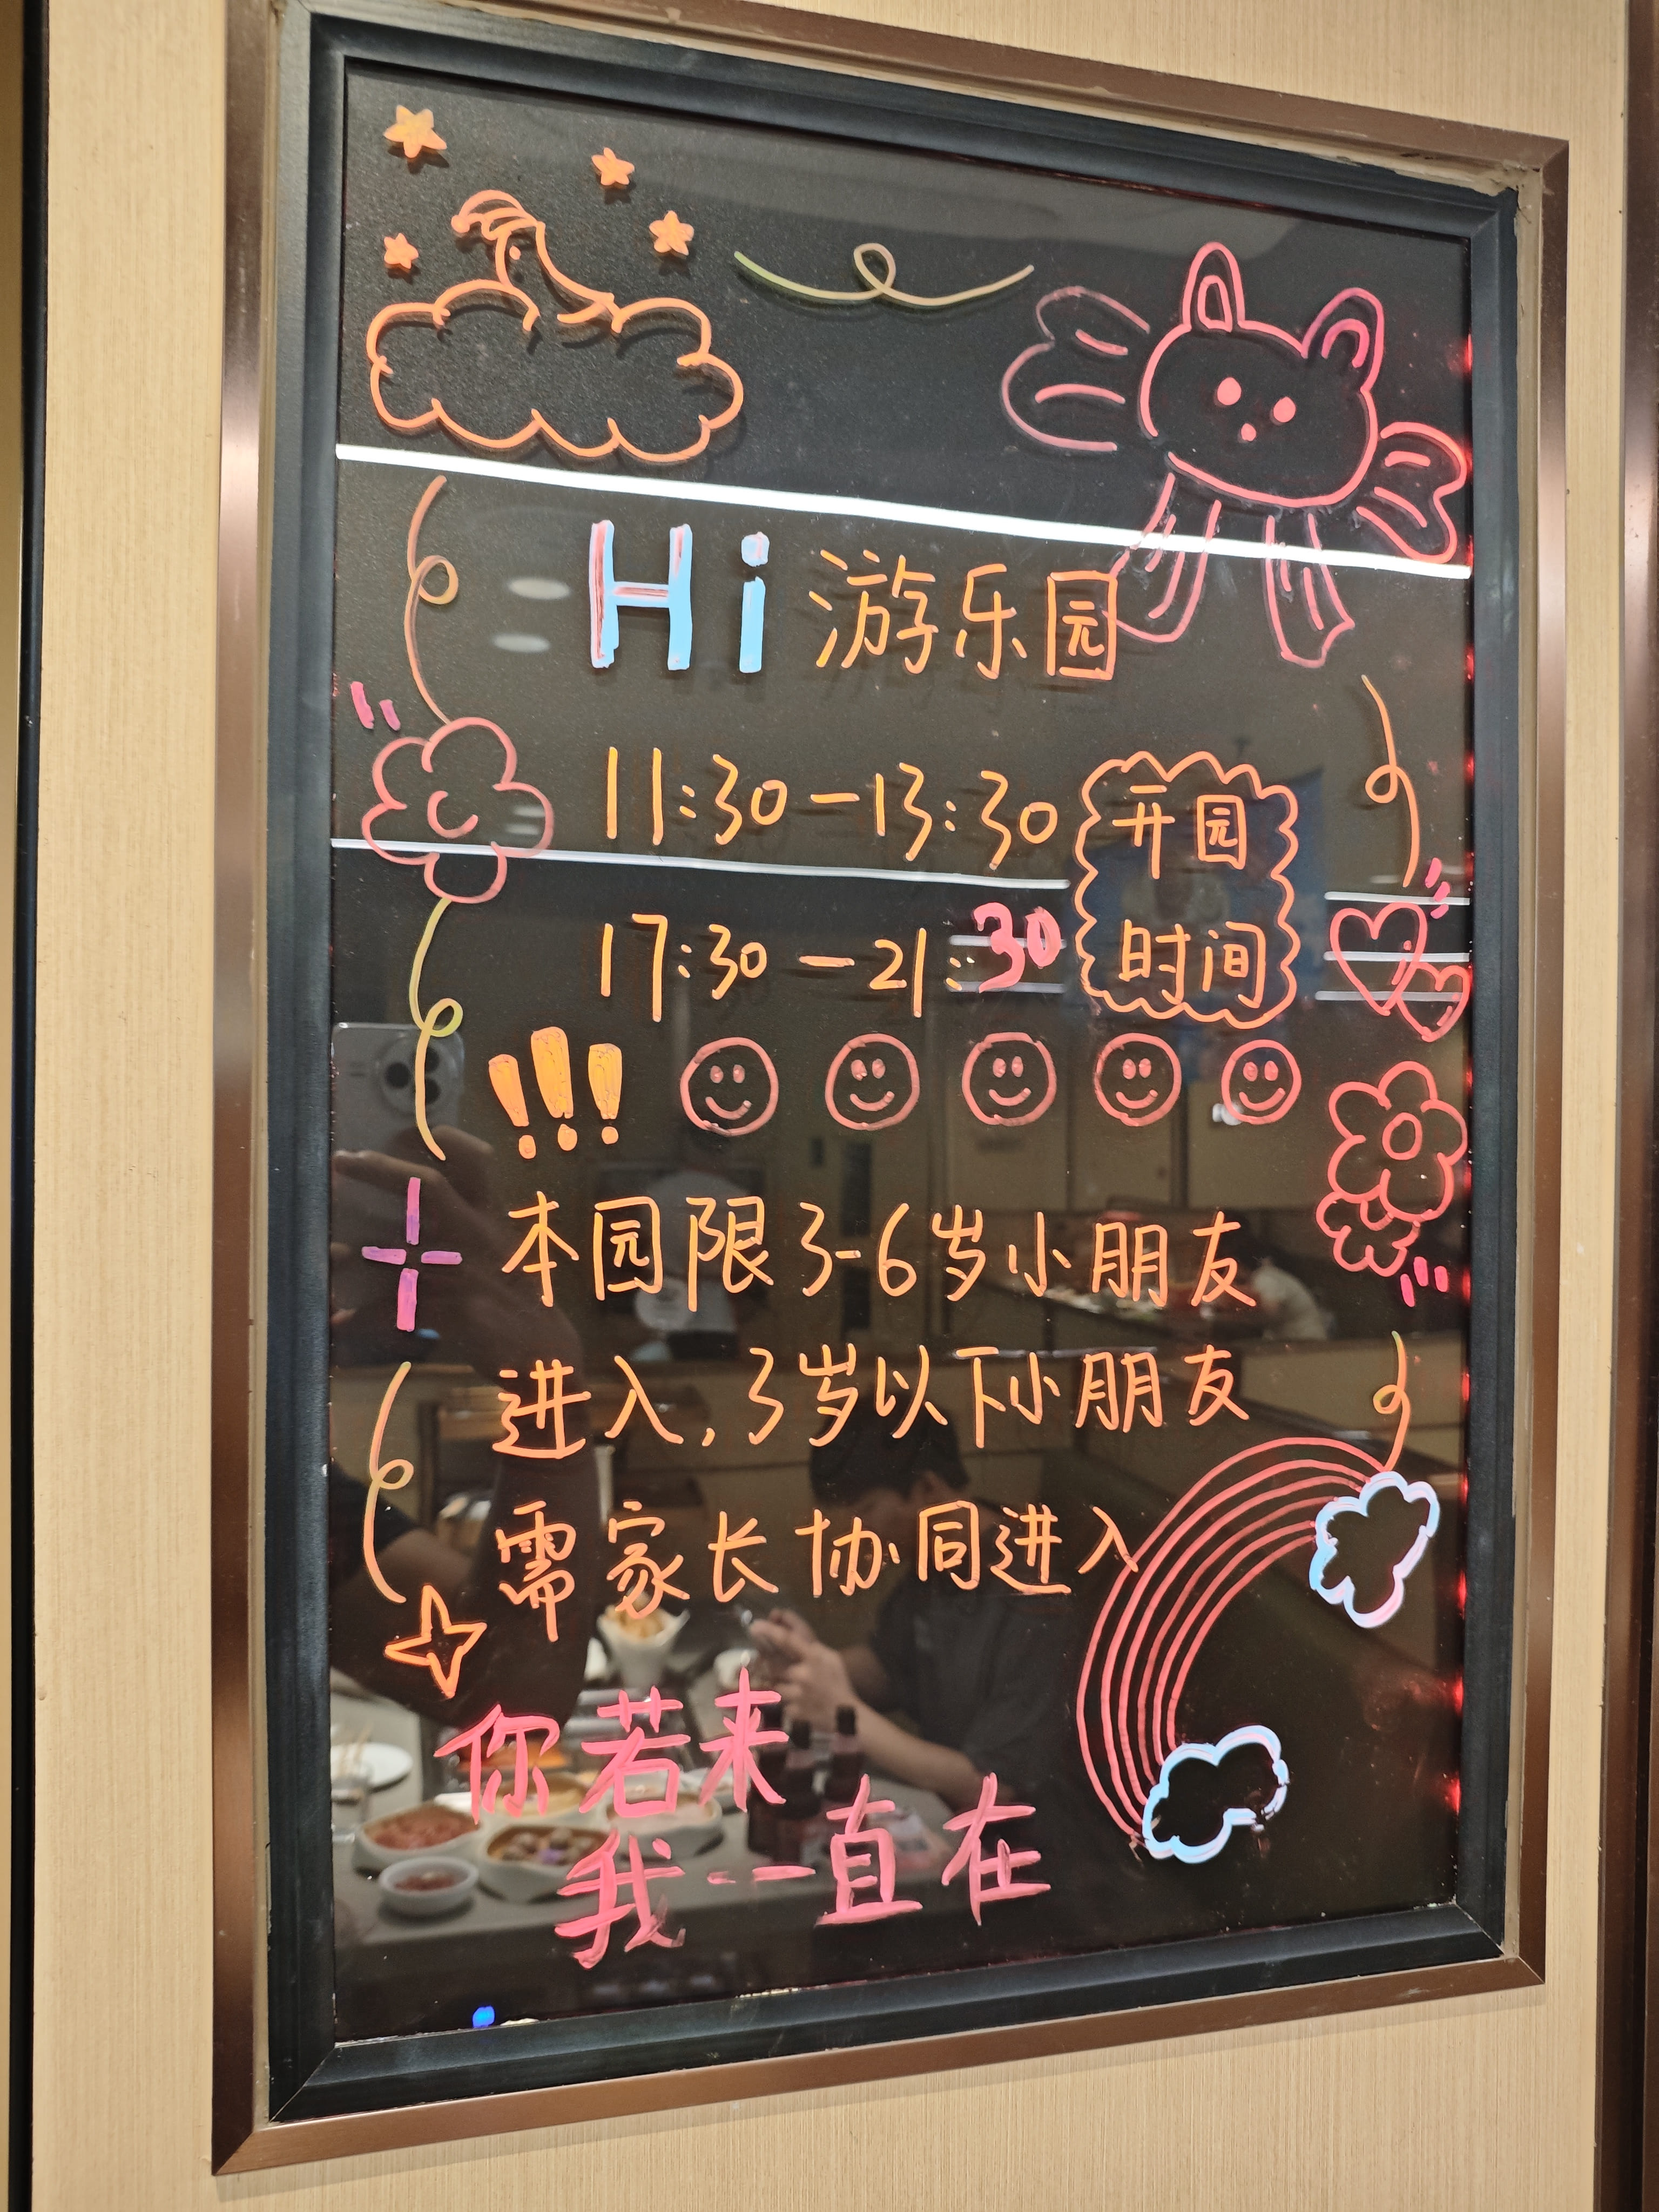 Hi 游乐园
11:30—13:30 开园
17:30—21:30 时间
!!!
本园限3-6岁小朋友
进入,3岁以下小朋友
需家长协同进入
你若来
我一直在